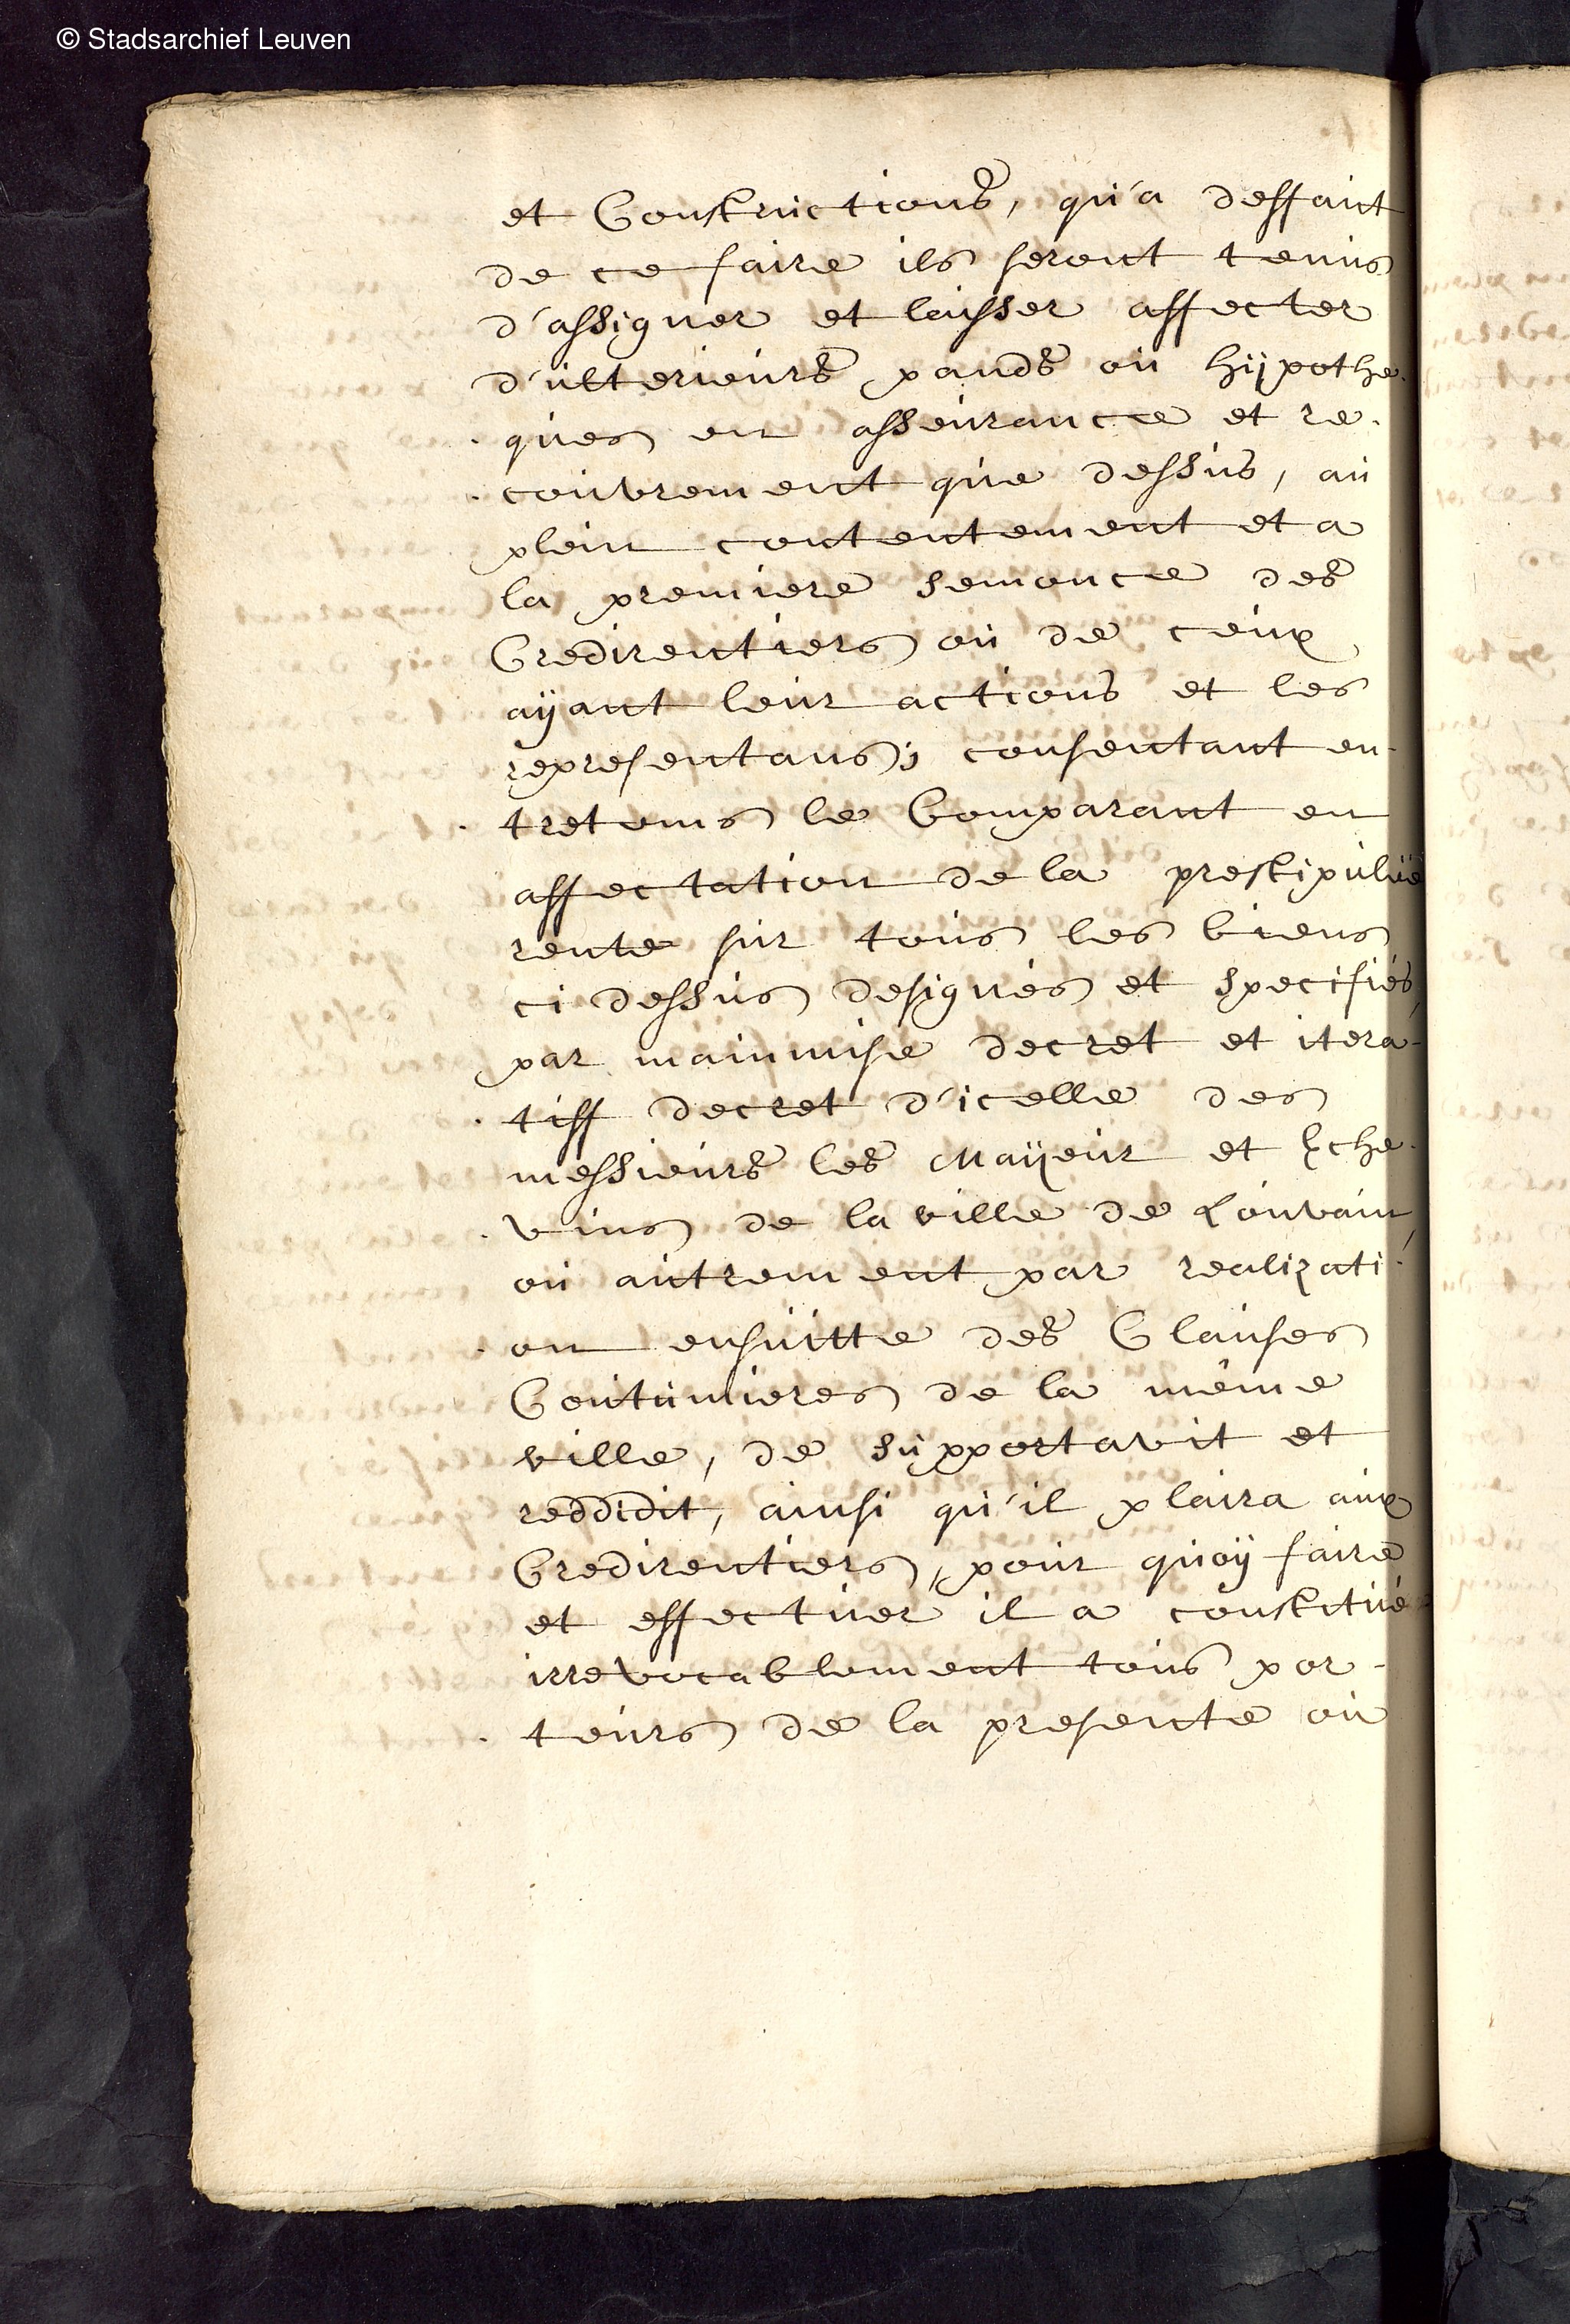 © Stadsarchief Leuven
et Constructions, qu'a deffaut
de ce faire ils seront tenus
d'assigner et laisser affecter
d'ulterieurs pands ou hijpothe-
ques en asseurance et re-
couvrement que dessus, au
plein contentement et a
la premiere semonce des
Credirentiers ou de ceux
aijant leur actions et les
representans; consentant en-
tretems le Comparant en
affectation de la prestipulée
rente sur tous les biens
ci dessus designés et specifiés,
par mainmise decret et itera-
tiff decret d'icelle des
messieurs les Maijeur et Eche-
vins de la ville de Louvain,
ou autrement par realizati-
on ensuitte des Clauses
Coutumieres de la même
ville, de supportavit et
reddidit, ainsi qu'il plaira aux
Credirentiers, pour quoij faire
et effectuer il a constitué
irrevocablement tous por-
teurs de la presente ou